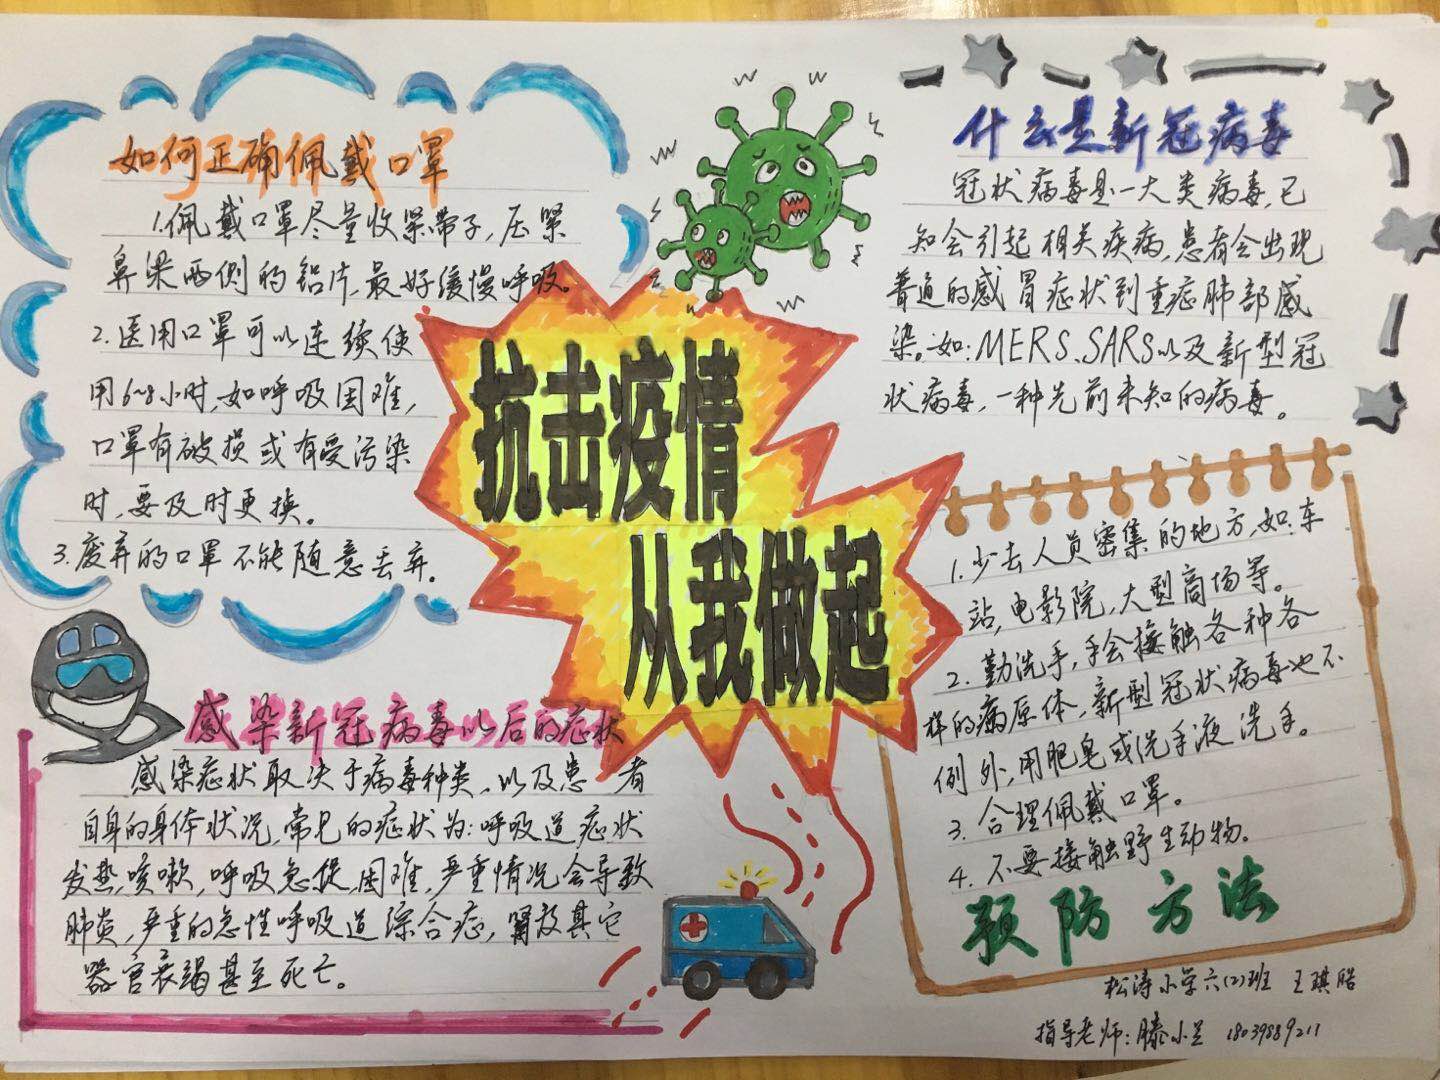 如何正确佩戴口罩
1.佩戴口罩尽量收紧带子,压紧
鼻梁两侧的铝片,最好缓慢呼吸。
2.医用口罩可以连续使
用6~8小时,如呼吸困难,
口罩有破损或有受污染
时,要及时更换。
3.废弃的口罩不能随意丢弃。
抗击疫情
从我做起
什么是新冠病毒
冠状病毒是一大类病毒,已
知会引起相关疾病,患者会出现
普通的感冒症状到重症肺部感
染。如:MERS、SARS以及新型冠
状病毒,一种先前未知的病毒。
感染新冠病毒以后的症状
感染症状取决于病毒种类,以及患者
自身的身体状况,常见的症状为:呼吸道症状
发热,咳嗽,呼吸急促困难,严重情况会导致
肺炎,严重的急性呼吸道综合症,肾及其它
器官衰竭甚至死亡。
1.少去人员密集的地方,如:车
站,电影院,大型商场等。
2.勤洗手,手会接触各种各
样的病原体,新型冠状病毒也不
例外,用肥皂或洗手液洗手。
3.合理佩戴口罩。
4.不要接触野生动物。
预防方法
松涛小学六(2)班 王琪
指导老师:滕小兰 18039889211